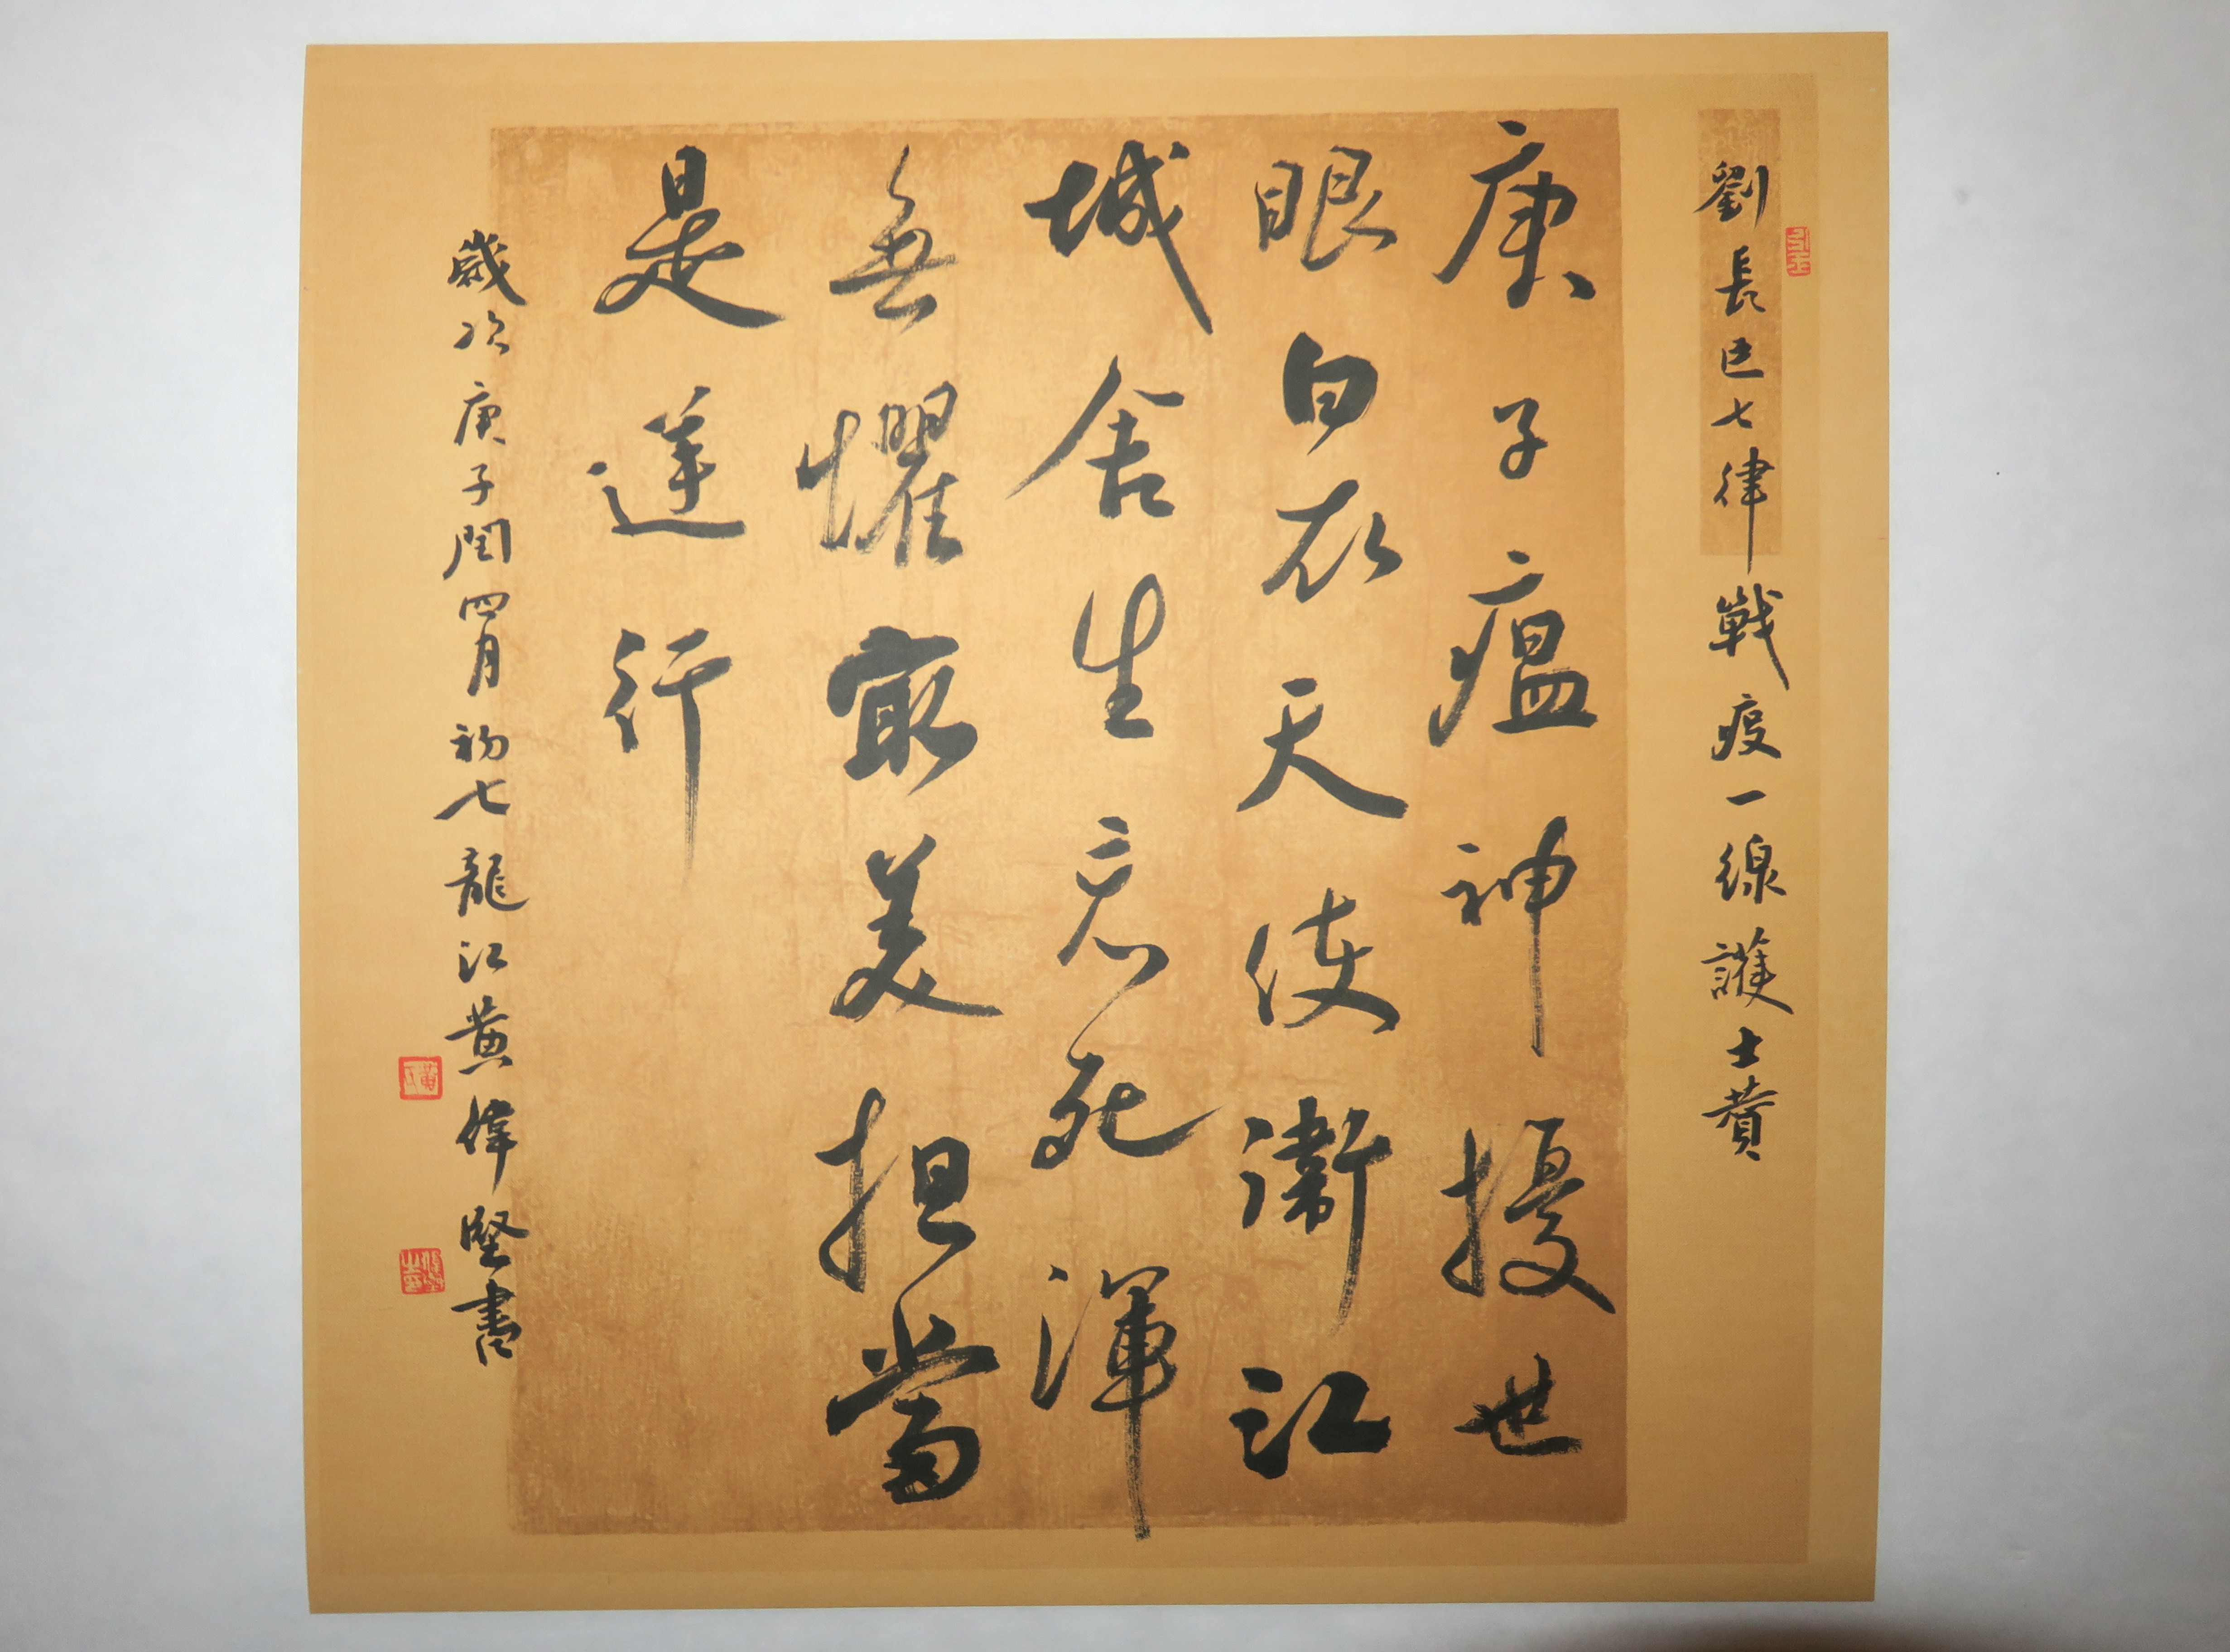 劉長巨七律戰疫一線護士贊
庚子瘟神擾世
眼白衣天使衛江
城舍生忘死渾
無懼最美担當
是逆行
歲次庚子閏四月初七龍江黄偉堅書